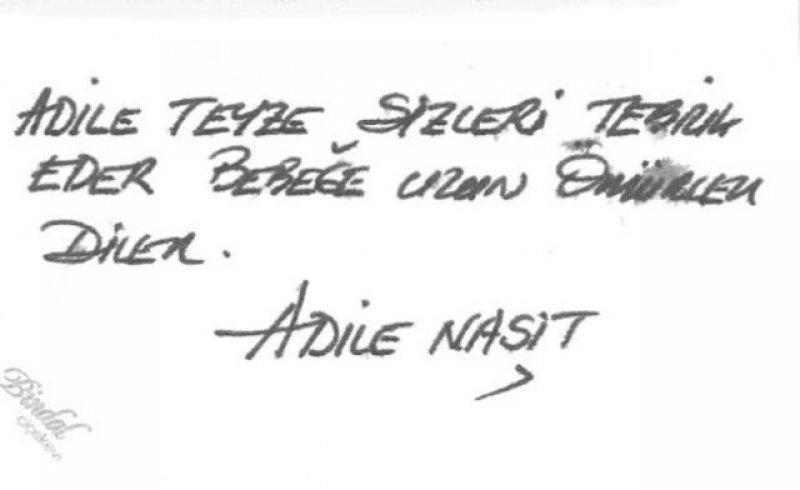 ADİLE TEYZE SİZLERİ TEBRİK
EDER BEBEĞE UZUN ÖMÜRLER
DİLER.
ADİLE NAŞİT
Bindal
çiçekevi